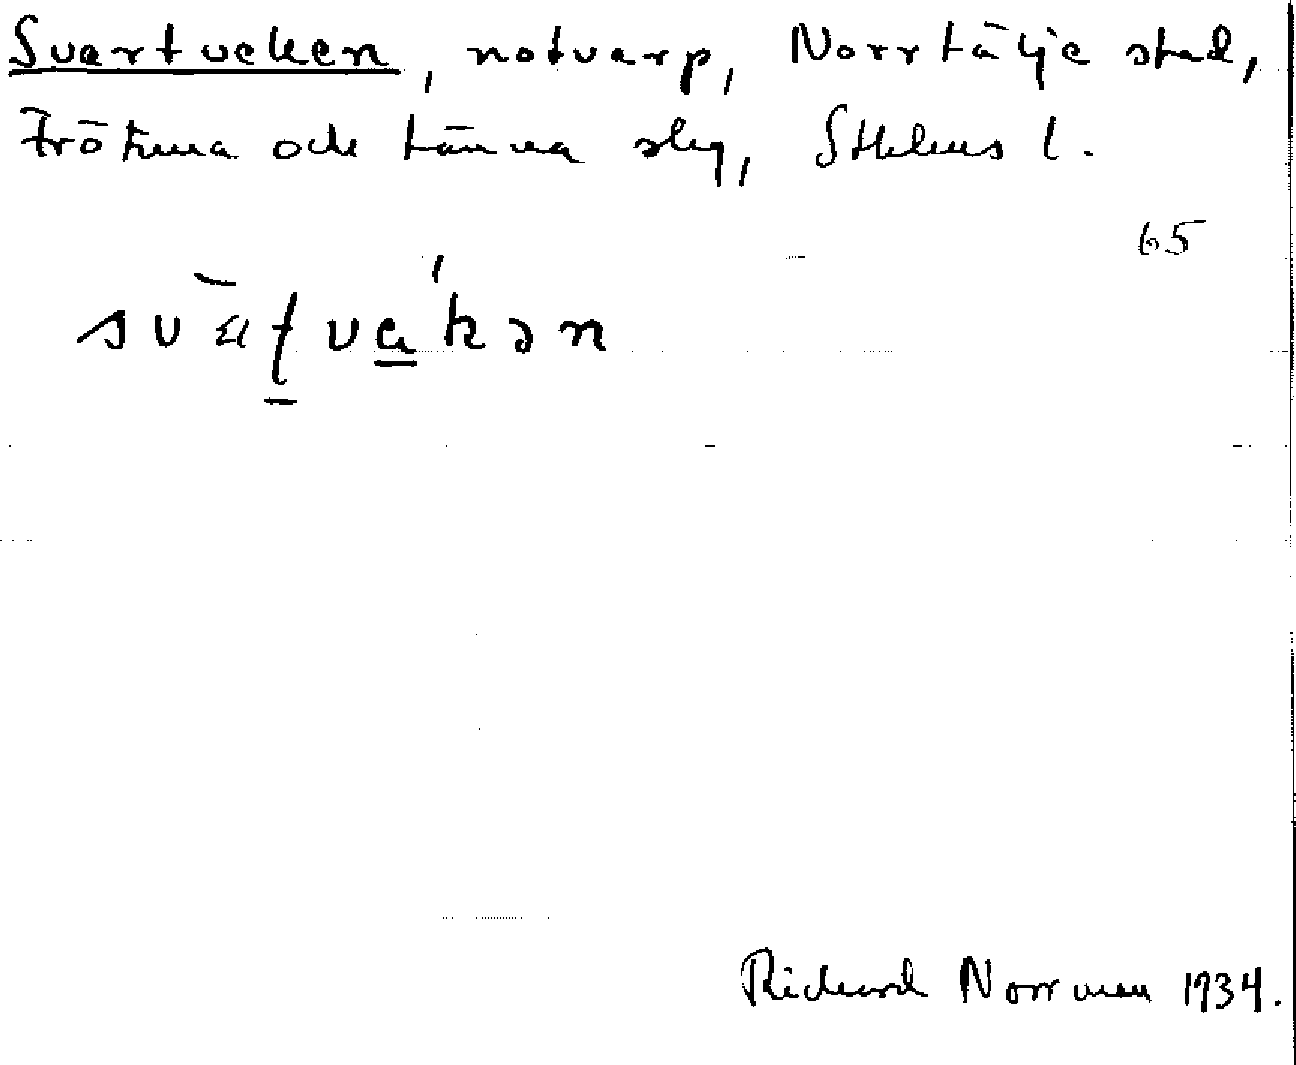 Svartveken, notvarp, Norrtälje stad,
Frötuna och Länna skg, Sthlms l.
65
Richard Norrman 1934.